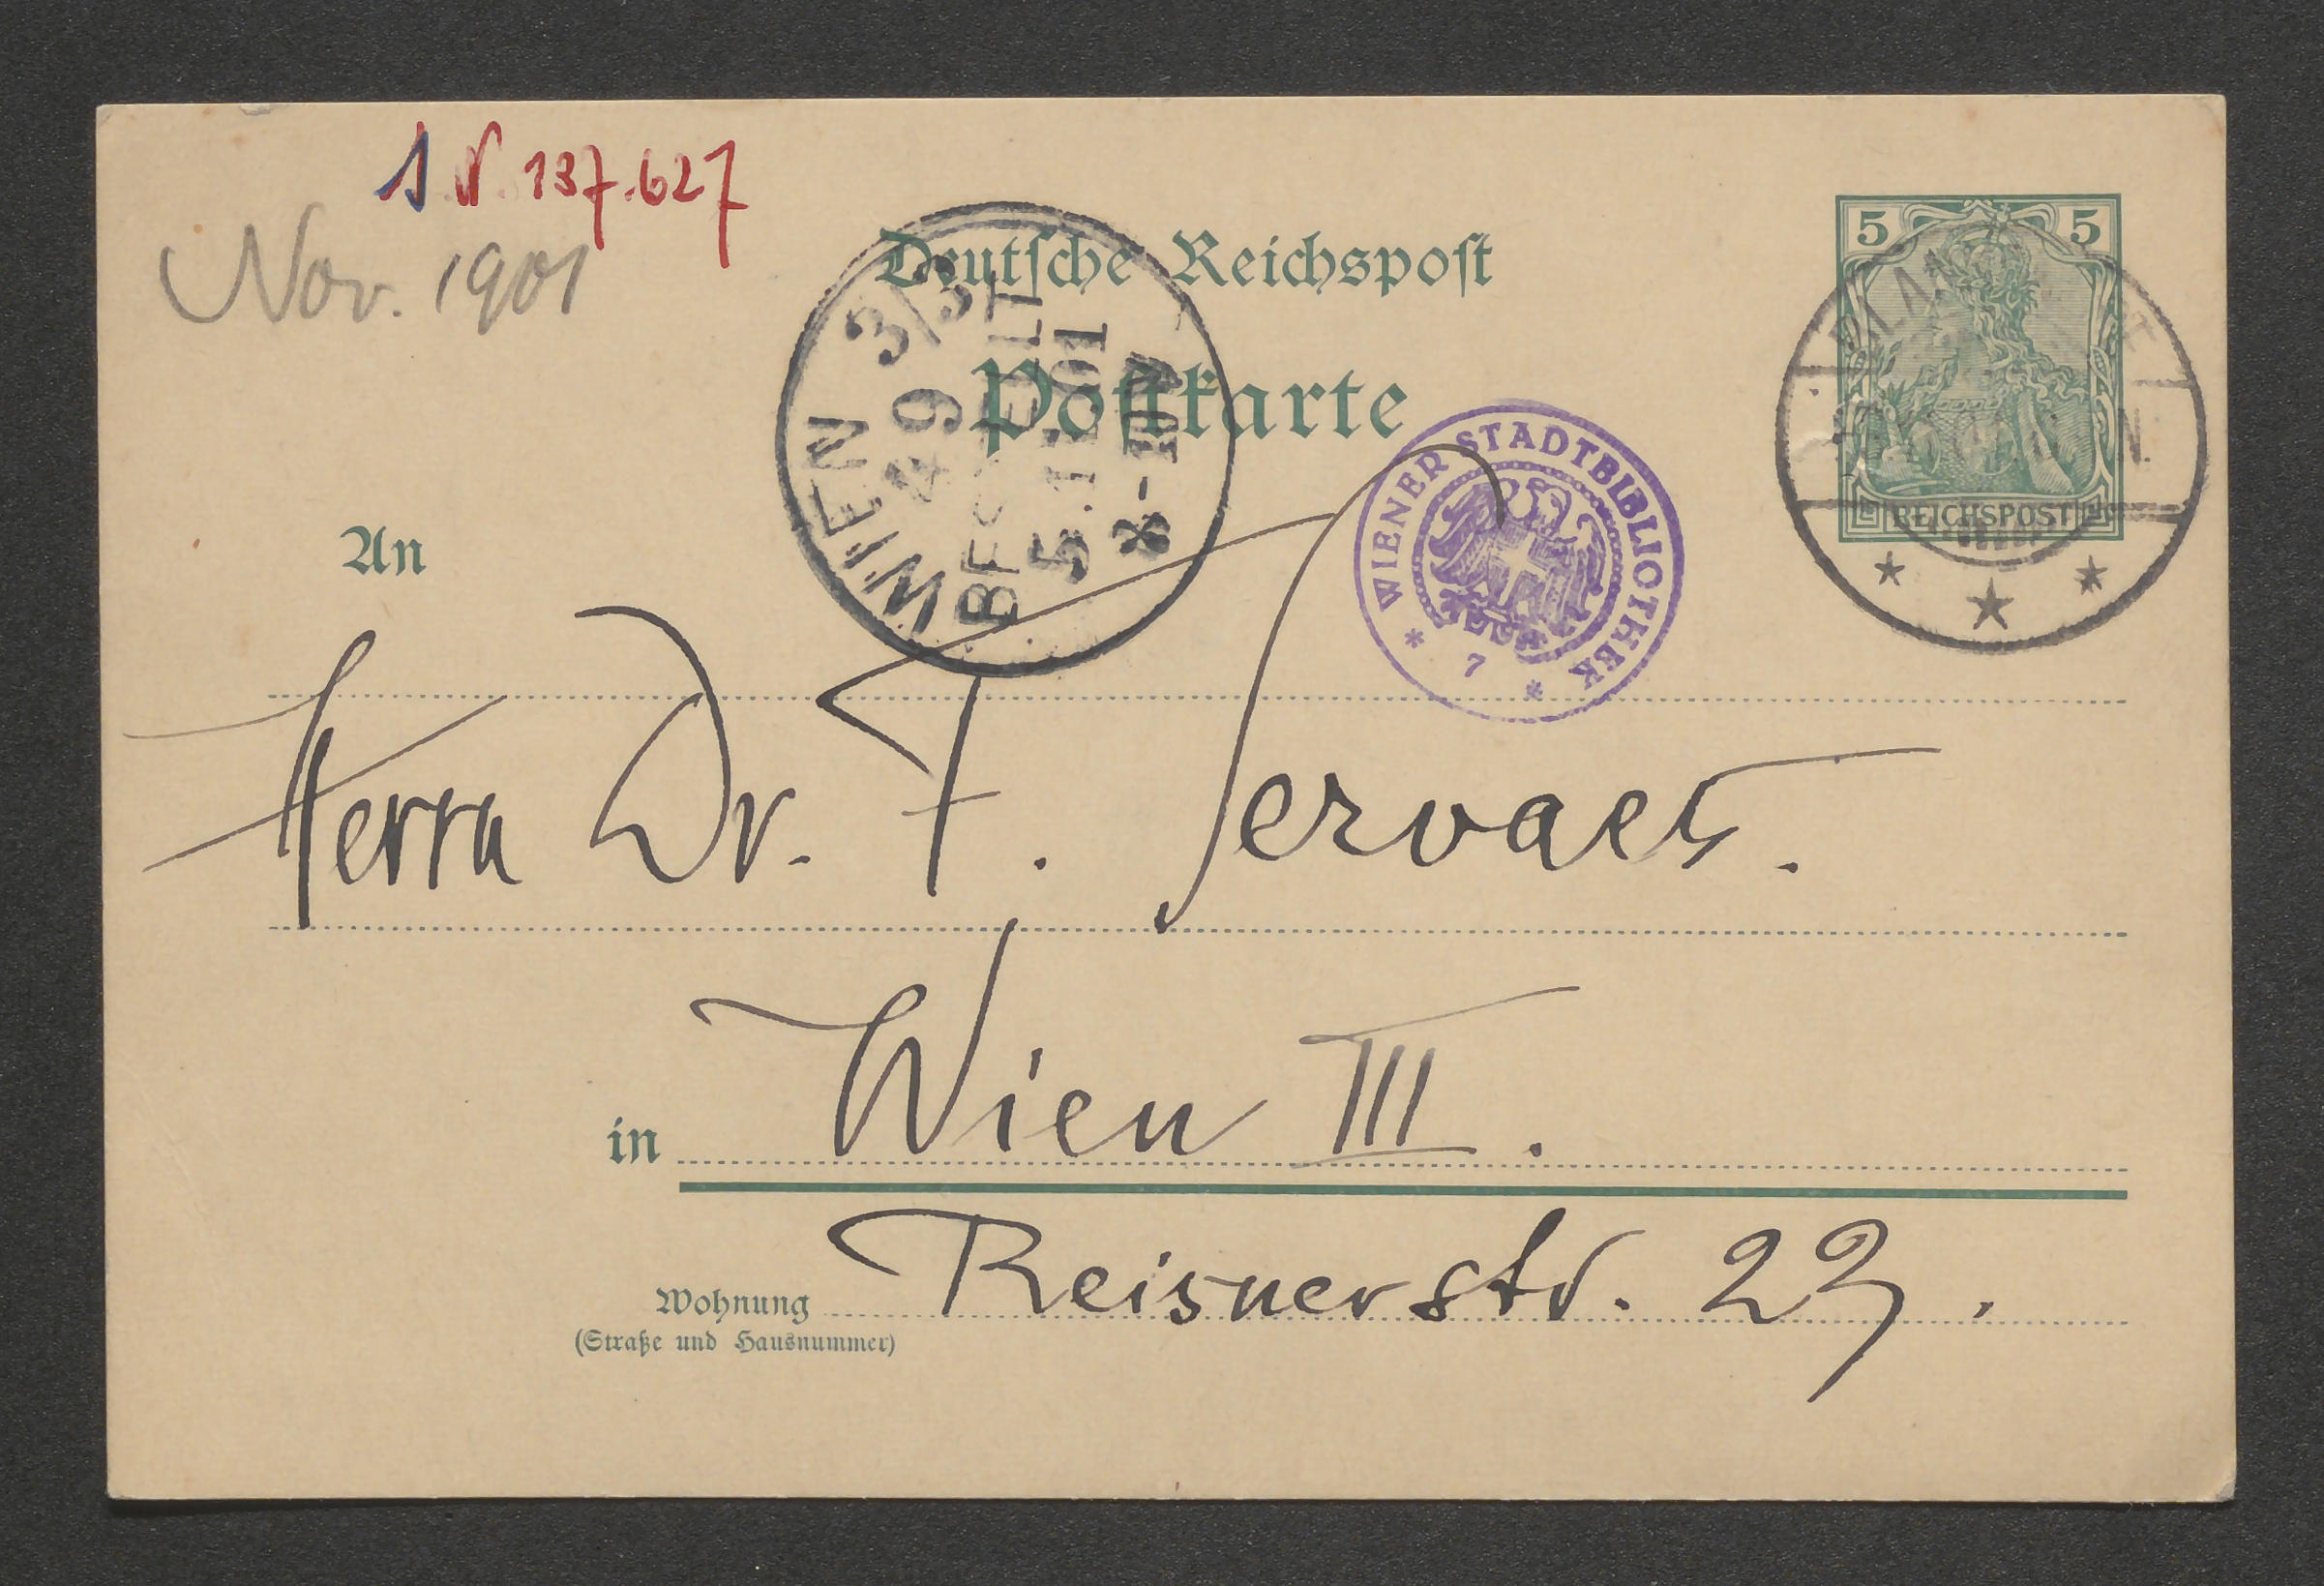 1 N. 137.627
Nov. 1901
Deutsche Reichspost
Postkarte
5 5
REICHSPOST
WIEN 3/3
49
BESTELLT
5.11.01
8-10V
WIENER STADTBIBLIOTHEK
* 7 *
An
Herrn Dr. F. Servaes.
in Wien III.
Wohnung Reisnerstr. 23.
(Straße und Hausnummer)